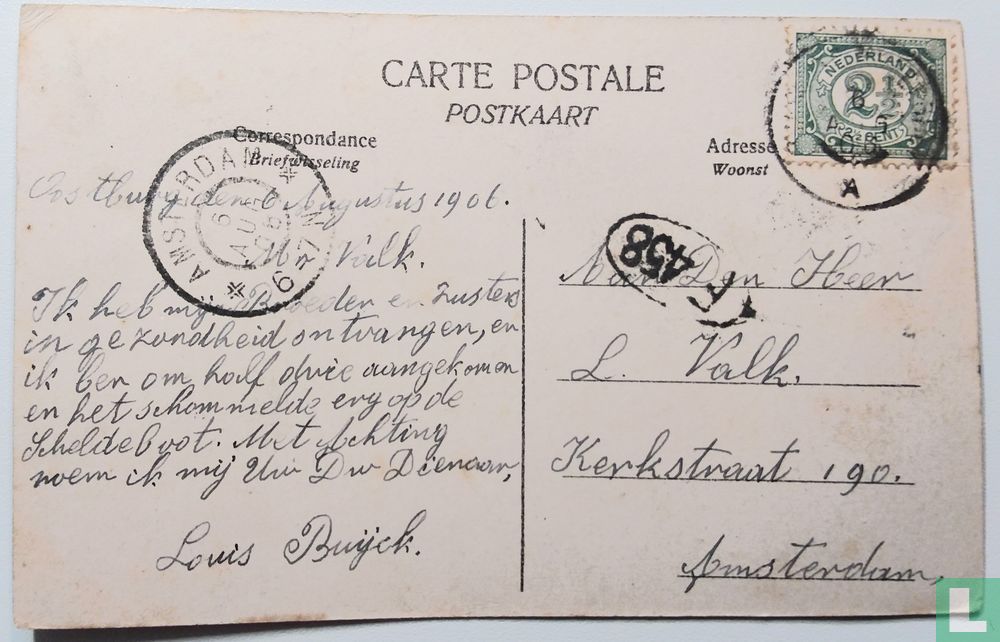 CARTE POSTALE
POSTKAART
Correspondance
Briefwisseling
Adresse
Woonst
NEDERLAND
2½
CENT
A
AMSTERDAM
6
AUG
06
6-7N
458
Oostburg den 6 Augustus 1906.
Mr Valk.
Ik heb mijn Broeder en zusters
in gezondheid ontvangen, en
ik ben om half drie aangekomen
en het schommelde erg op de
Scheldeboot. Met Achting
noem ik mij Uw Dw Dienaar,
Louis Buijck.
Aan Den Heer
L. Valk.
Kerkstraat 190.
Amsterdam,
L